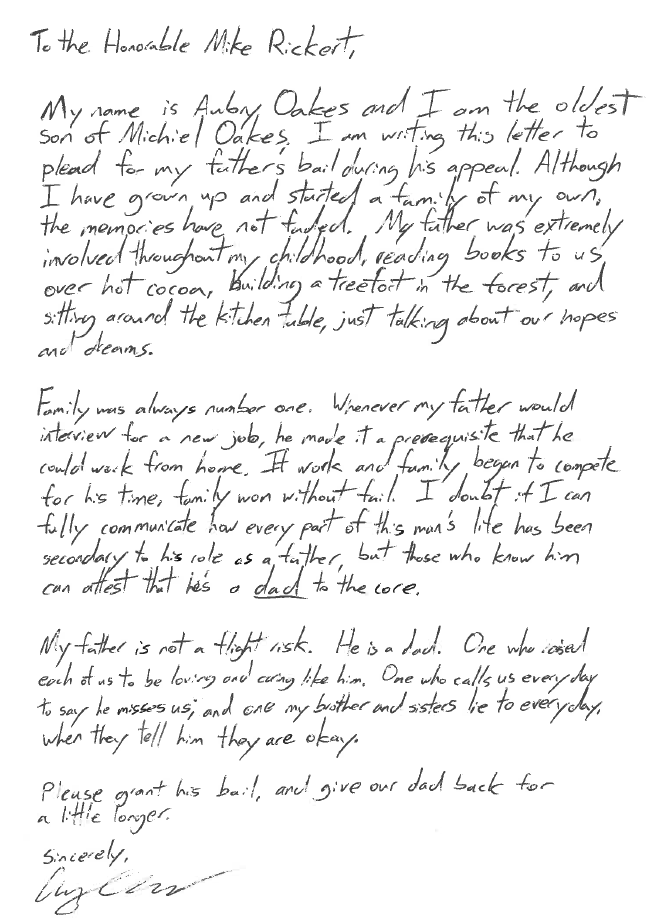 To the Honorable Mike Rickert,
My name is Aubry Oakes and I am the oldest
son of Michiel Oakes. I am writing this letter to
plead for my father's bail during his appeal. Although
I have grown up and started a family of my own,
the memories have not faded. My father was extremely
involved throughout my childhood, reading books to us
over hot cocoa, building a treefort in the forest, and
sitting around the kitchen table, just talking about our hopes
and dreams.
Family was always number one. Whenever my father would
interview for a new job, he made it a prerequisite that he
could work from home. If work and family began to compete
for his time, family won without fail. I doubt if I can
fully communicate how every part of this man's life has been
secondary to his role as a father, but those who know him
can attest that he's a dad to the core.
My father is not a flight risk. He is a dad. One who raised
each of us to be loving and caring like him. One who calls us everyday
to say he misses us; and one my brother and sisters lie to everyday,
when they tell him they are okay.
Please grant his bail, and give our dad back for
a little longer.
Sincerely,